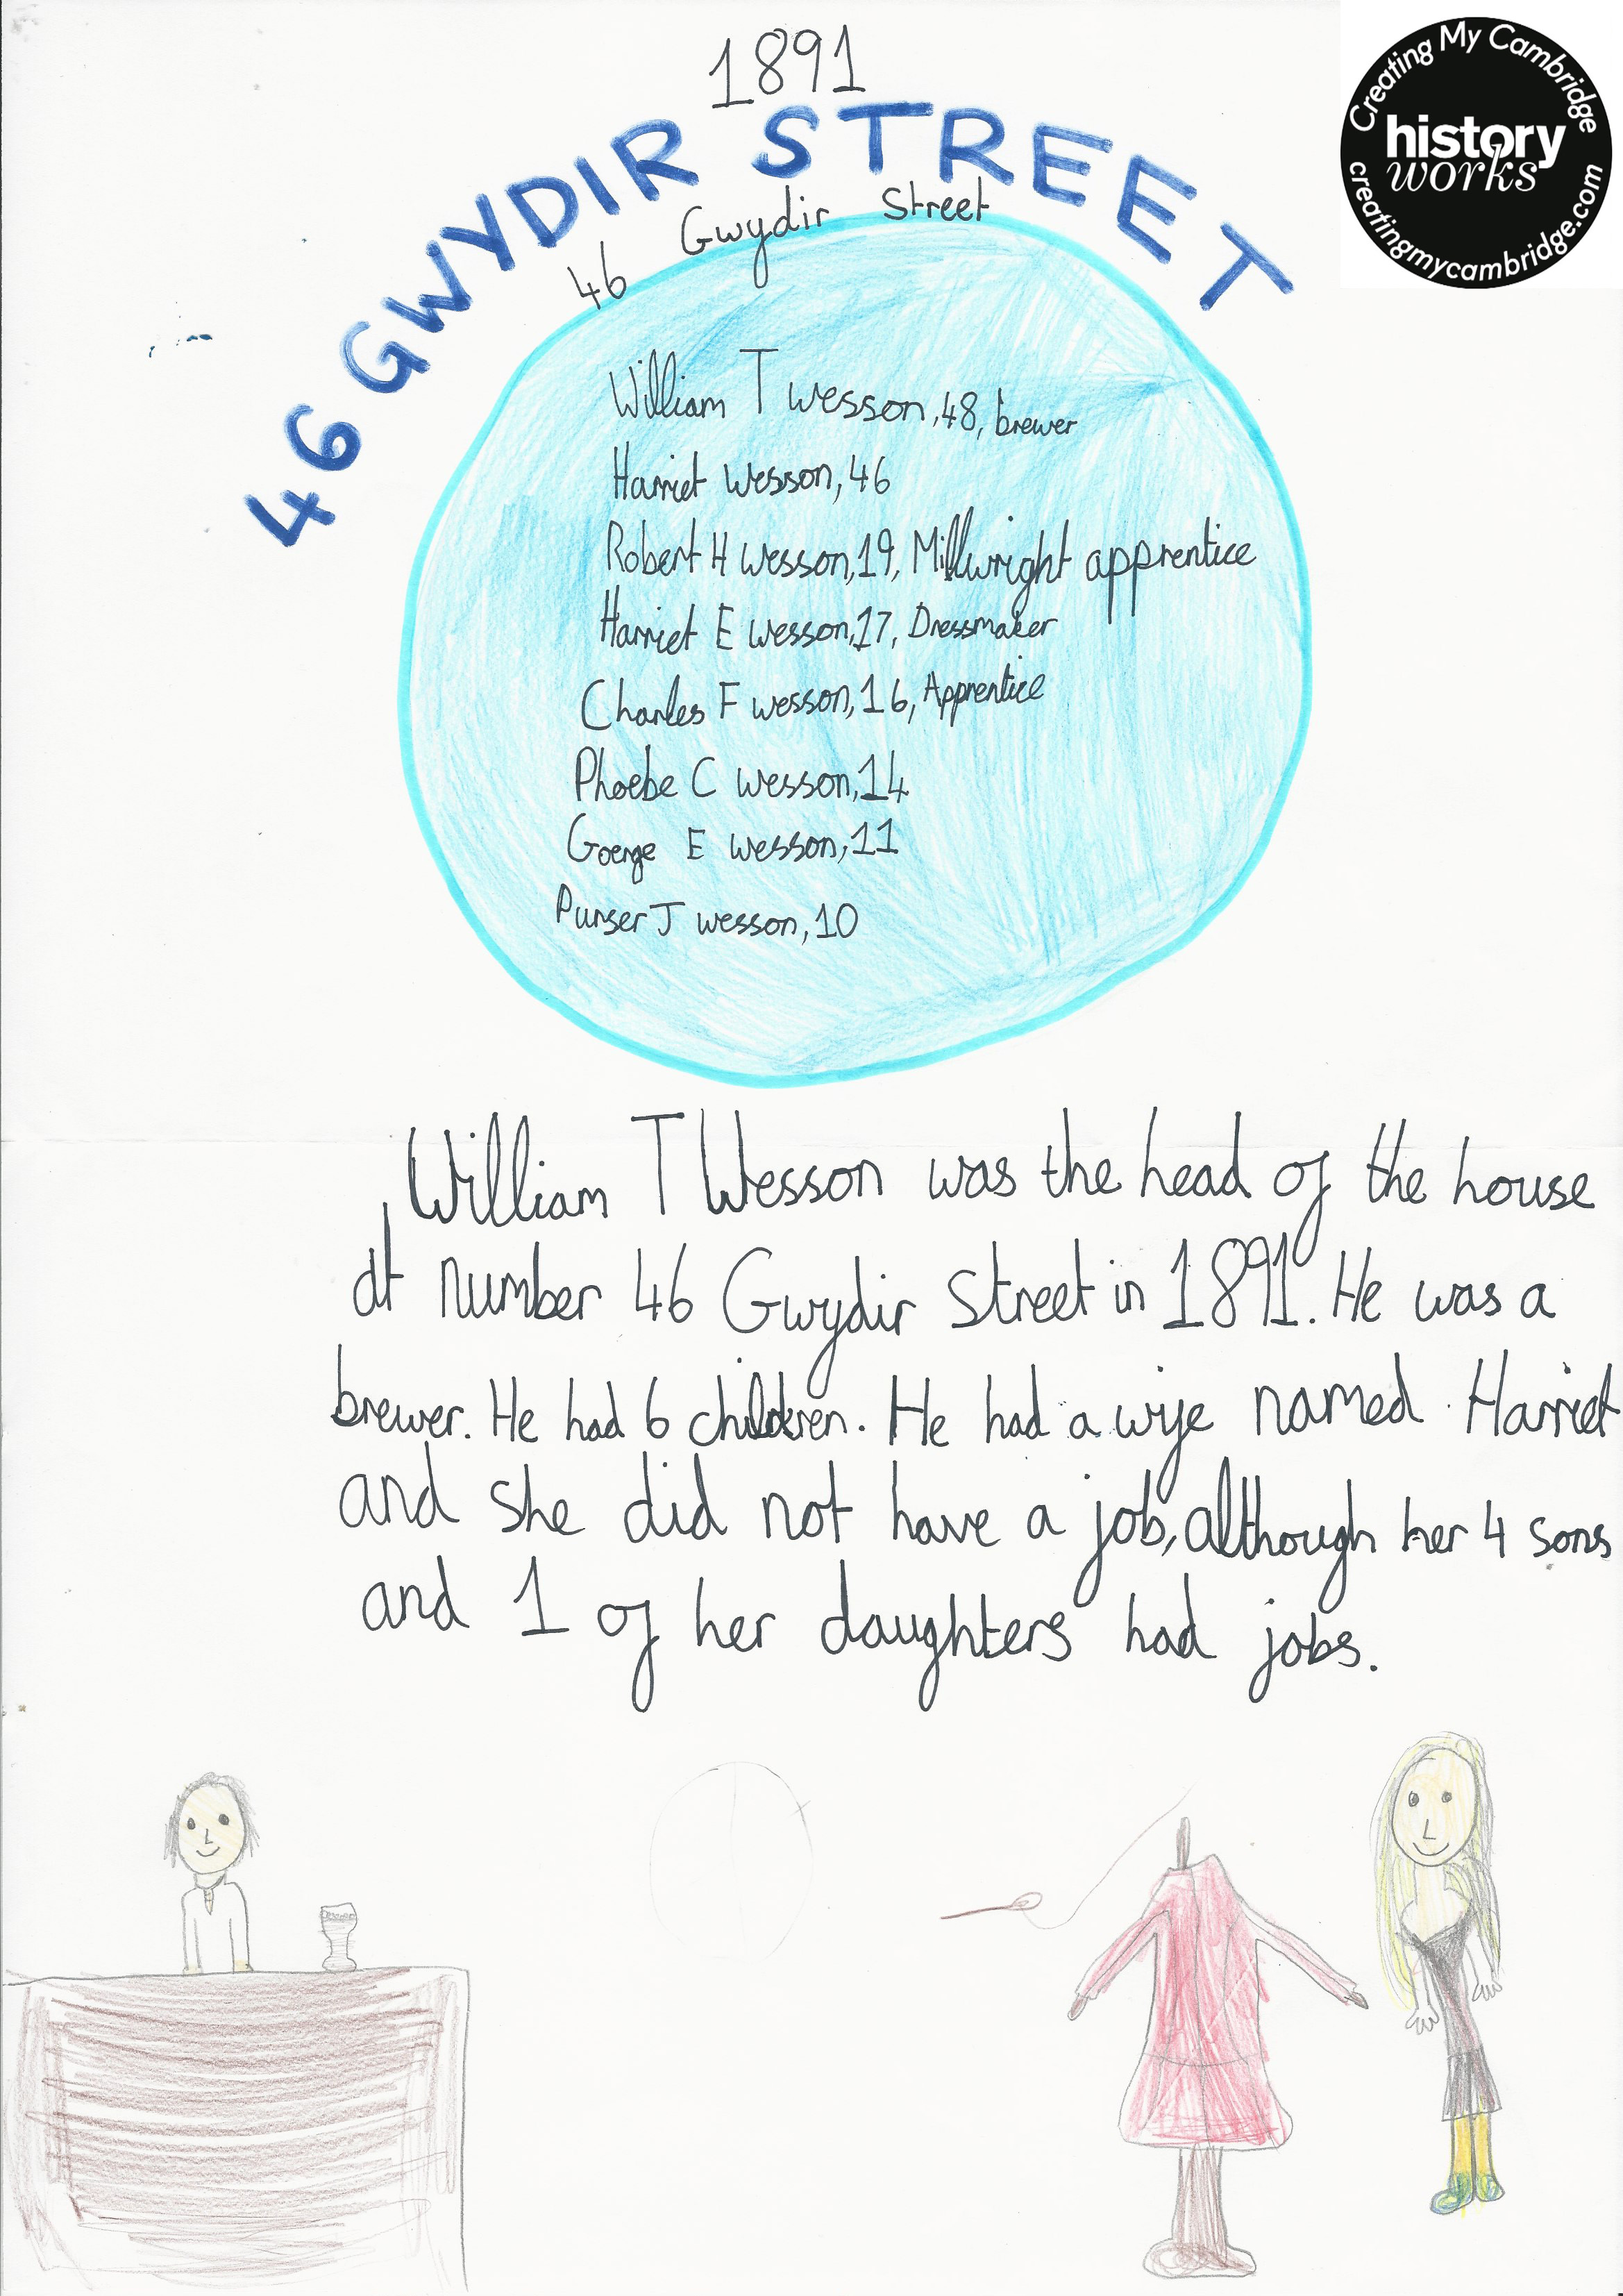 1891
Creating My Cambridge
history
works
creatingmycambridge.com
46 GWYDIR STREET
46 Gwydir Street
William T wesson, 48, brewer
Harriet wesson, 46
Robert H wesson, 19, Millwright apprentice
Harriet E wesson, 17, Dressmaker
Charles F wesson, 16, Apprentice
Phoebe C wesson, 14
Goerge E wesson, 11
Purser J wesson, 10
William T Wesson was the head of the house
at number 46 Gwydir Street in 1891. He was a
brewer. He had 6 children. He had a wife named Harriet
and she did not have a job, although her 4 sons
and 1 of her daughters had jobs.